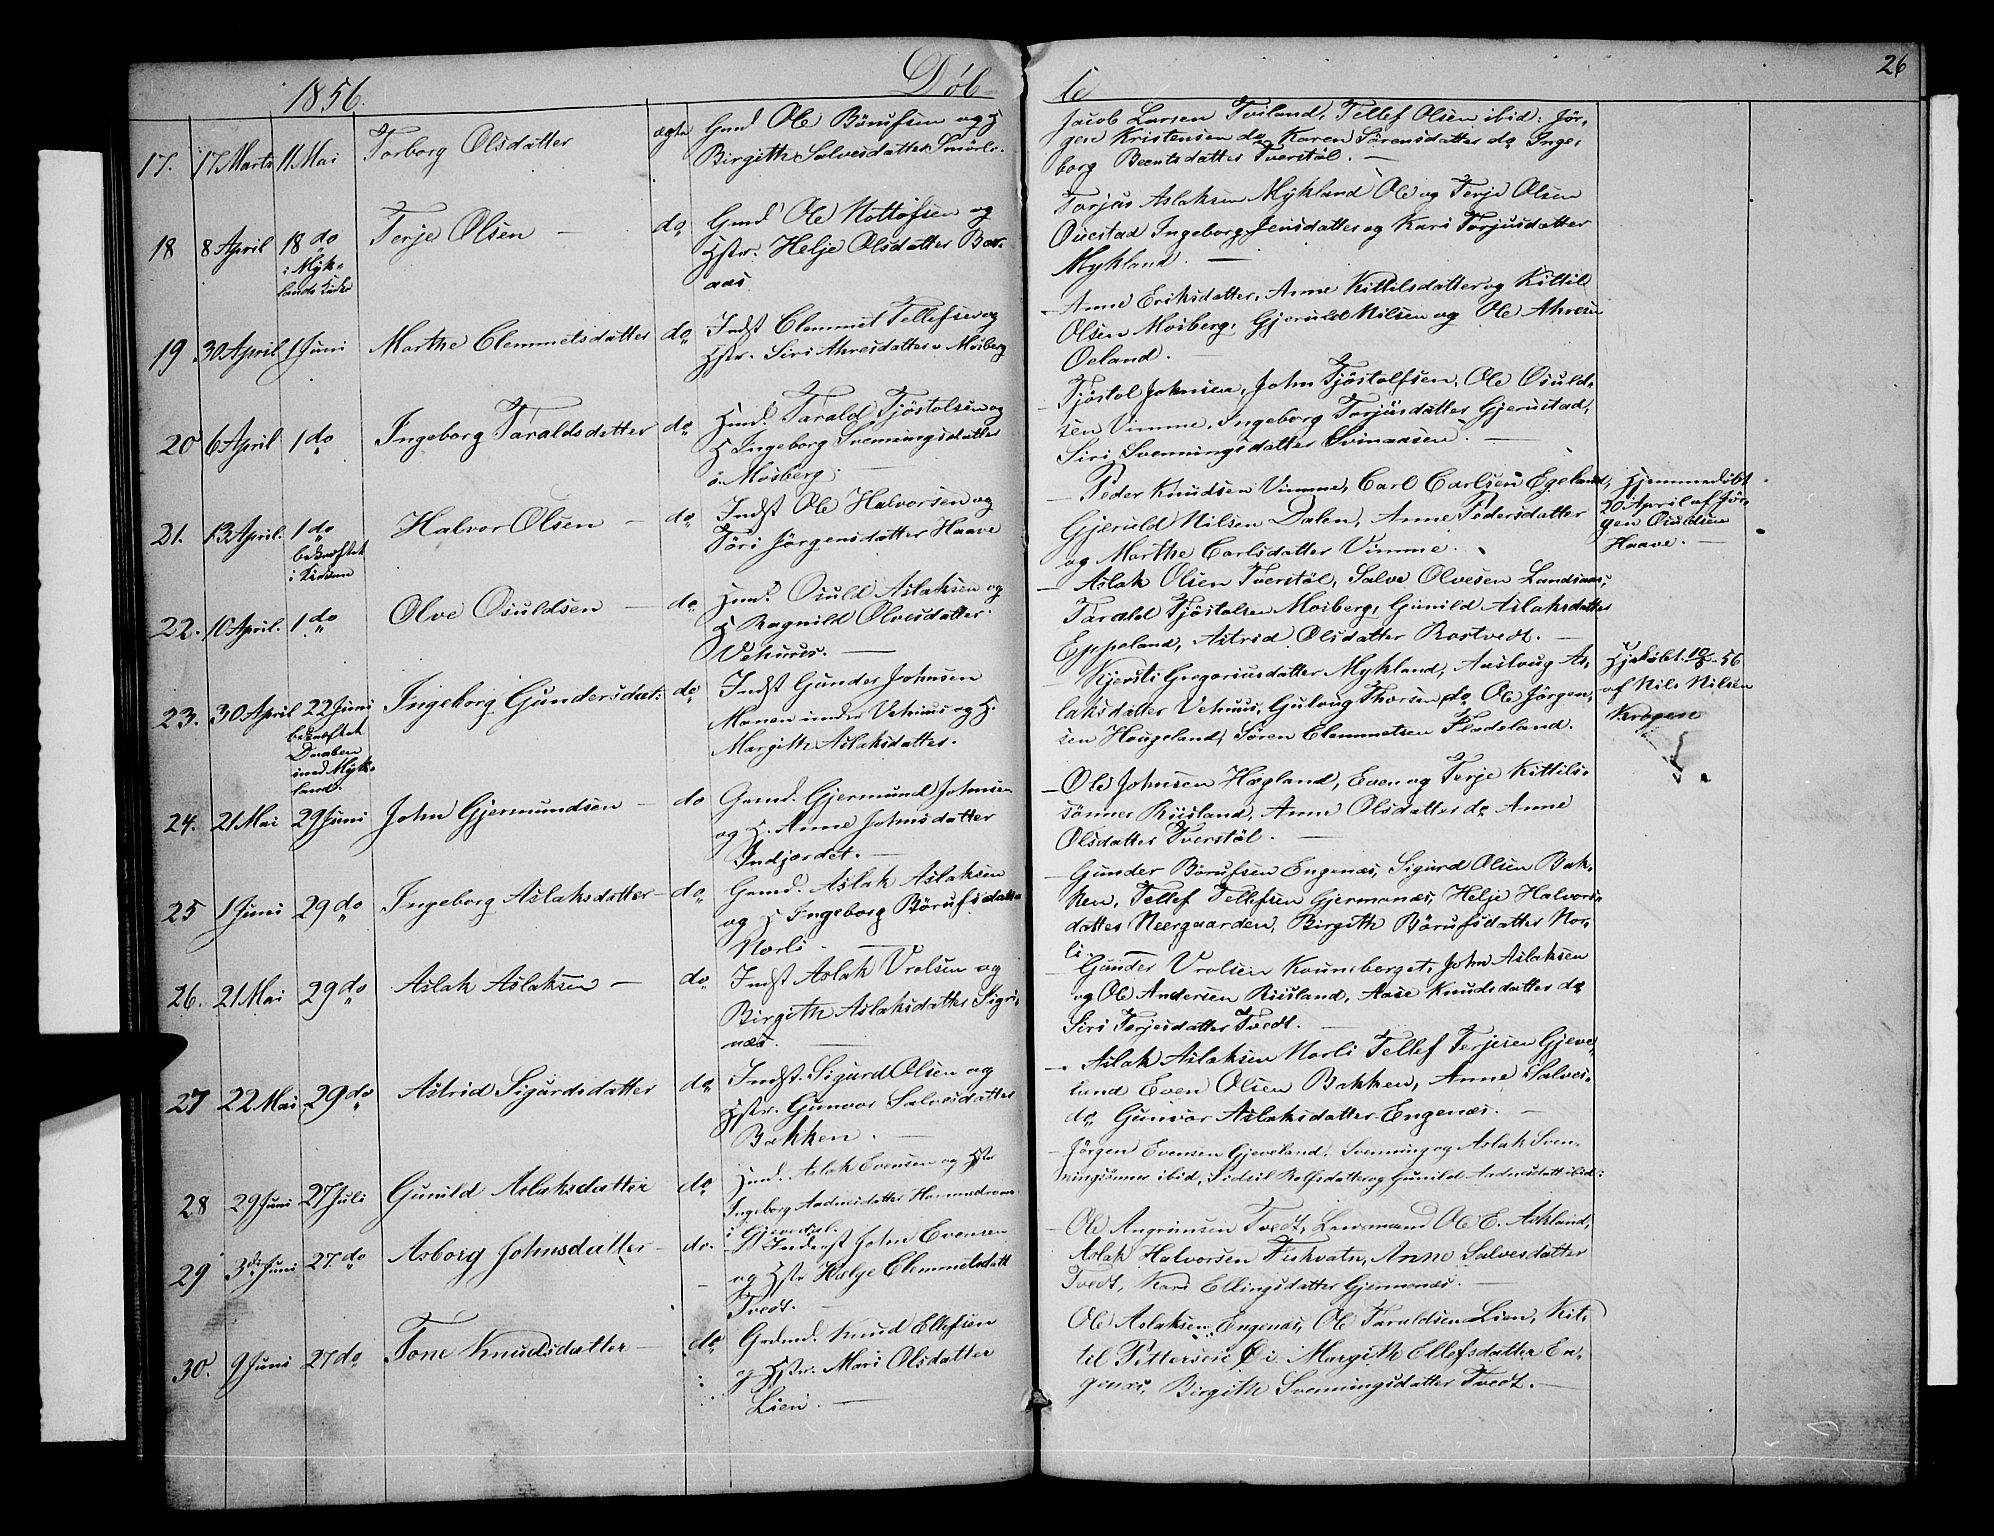 1856.
Døb-
te
26
17. 17 Marts 11 Mai Torborg Olsdatter ægte Gmd Ole Börufsen og H
Birgithe Salvesdatter Smörli.
Jacob Larsen Tveiland, Tellef Olsen ibid: Jör-
gen Kristensen do Karen Sörensdatter do Inge-
borg Beentsdatter Tverstöl. —
18 8 April 18 do
i Myk-
lands Kirke
Terje Olsen — do Gmd Ole Nottolfsen og
Hstr. Helje Olsdatter Baas-
aas.
Torjus Aslaksen Mykland Ole og Terje Olsen
Ouestad Ingeborg Jensdatter og Kari Torjusdatter
Mykland. —
19 30 April 1 Juni Marthe Clemmetsdatter do Indst Clemmet Tellefsen og
Hstr. Siri Ahresdatter Mosberg
— Anne Eriksdatter, Anne Kittilsdatter og Kittil
Olsen Mosberg, Gjeruld Nilsen og Ole Ahresen
Oeland.
20 6 April 1 do Ingeborg Taraldsdatter do Hmd. Tarald Tjöstolsen og
H Ingeborg Svenningsdatter
i Mosberg. —
— Tjöstol Johnsen, John Tjöstolfsen, Ole Osuld-
sen Vimme, Ingeborg Torjusdatter Gjerustad,
Siri Svenningsdatter Svinaasen. —
21. 13 April. 1 do
bekræftet
i Kirken
Halvor Olsen — do Indst Ole Halvorsen og
Töri Jörgensdatter Haave
— Peder Knudsen Vimme, Carl Carlsen Egeland,
Gjeruld Nilsen Dalen, Anne Pedersdatter
og Marthe Carlsdatter Vimme.
Hjemmedöbt
20 April af Jör-
gen Osuldsen
Haave. —
22. 10 April. 1 do Olve Osuldsen — do Hmd. Osuld Aslaksen og
H Ragnild Olvesdatter
Vehuus. —
— Aslak Olsen Tverstöl, Salve Olvesen Landsaas,
Tarald Tjöstolsen Mosberg, Gunild Aslaksdatter
Eppeland, Astrid Olsdatter Rostvedt. —
23. 30 April 22 Juni
bekræftet
Daaben
ined Myk-
land.
Ingeborg Gundersdat: do Indst Gunder Johnsen
Monen under Vehuus og H.
Margith Aslaksdatter.
— Kjersti Gregoriusdatter Mykland, Aaslaug As-
laksdatter Vehuus, Gulaug Thorsen do Ole Jörgen-
sen Hougeland, Sören Clemmetsen Fladeland.
Hjdöbt. 10/5-56
af Nils Nilsen
Krogen
24. 21 Mai 29 Juni John Gjermundsen — do Grmd. Gjermund Johnsen
og H. Anne Johnsdatter
Indjordet. —
— Ole Johnsen Hægland, Even og Terje Kittils-
sönner Risland, Anne Olsdatter do Anne
Olsdatter Tverstöl. —
25 1 Juni 29 do Ingeborg Aslaksdatter — do Grmd. Aslak Aslaksen
og H Ingeborg Börufsdatter
Norli —
— Gunder Börufsen Engenæs, Sigurd Olsen Bak-
ken, Tellef Tellefsen Gjermonæs, Helje Halvors-
datter Neergaarden, Birgith Börufsdatter Nor-
li. —
26. 21 Mai 29 do Aslak Aslaksen — do Indst Aslak Vrolsen og
Birgith Aslaksdatter Sigri-
næs. —
— Gunder Vrolsen Kouneberget, John Aslaksen
og Ole Andersen Risland, Aase Knudsdatter do
Siri Terjesdatter Tvedt. —
27 22 Mai 29 do Astrid Sigurdsdatter do Indst. Sigurd Olsen og
Hstr. Gunvor Salvesdatter
Bakken. —
— Aslak Aslaksen Norli Tellef Terjesen Gjeve-
land Even Olsen Bakken, Anne Salves-
do Gunvor Aslaksdatter Engenæs. —
28 29 Juni 27 Juli Gunild Aslaksdatter do Hmd. Aslak Evensen og Hstr
Ingeborg Andresdatter
— Jörgen Evensen Gjeveland, Svenning og Aslak Sven-
ningsönner ibid, Sidsil Rolfsdatter og Gunild Andresdatt ibid:
29 3die Juni 27. do Asborg Johnsdatter — do. Inderst John Evensen
og Hstr Helje Clemmetsdatt
Tvedt. —
— Ole Angrimsen Tvedt, Lensmand Ole E. Askland,
Aslak Halvorsen Fiskvatn, Anne Salvesdatter
Tvedt, Kari Ellingsdatter Gjermonæs. —
30. 9 Juni 27 do Tone Knudsdatter — do Grdmd. Knud Ellefsen
og Hstr. Mari Olsdatter
Lien. —
Ole Aslaksen Engenæs, Ole Taraldsen Lien, Kit-
til Pittersen Margith Ellefsdatter En-
genæs, Birgith Svenningsdatter Tvedt. —